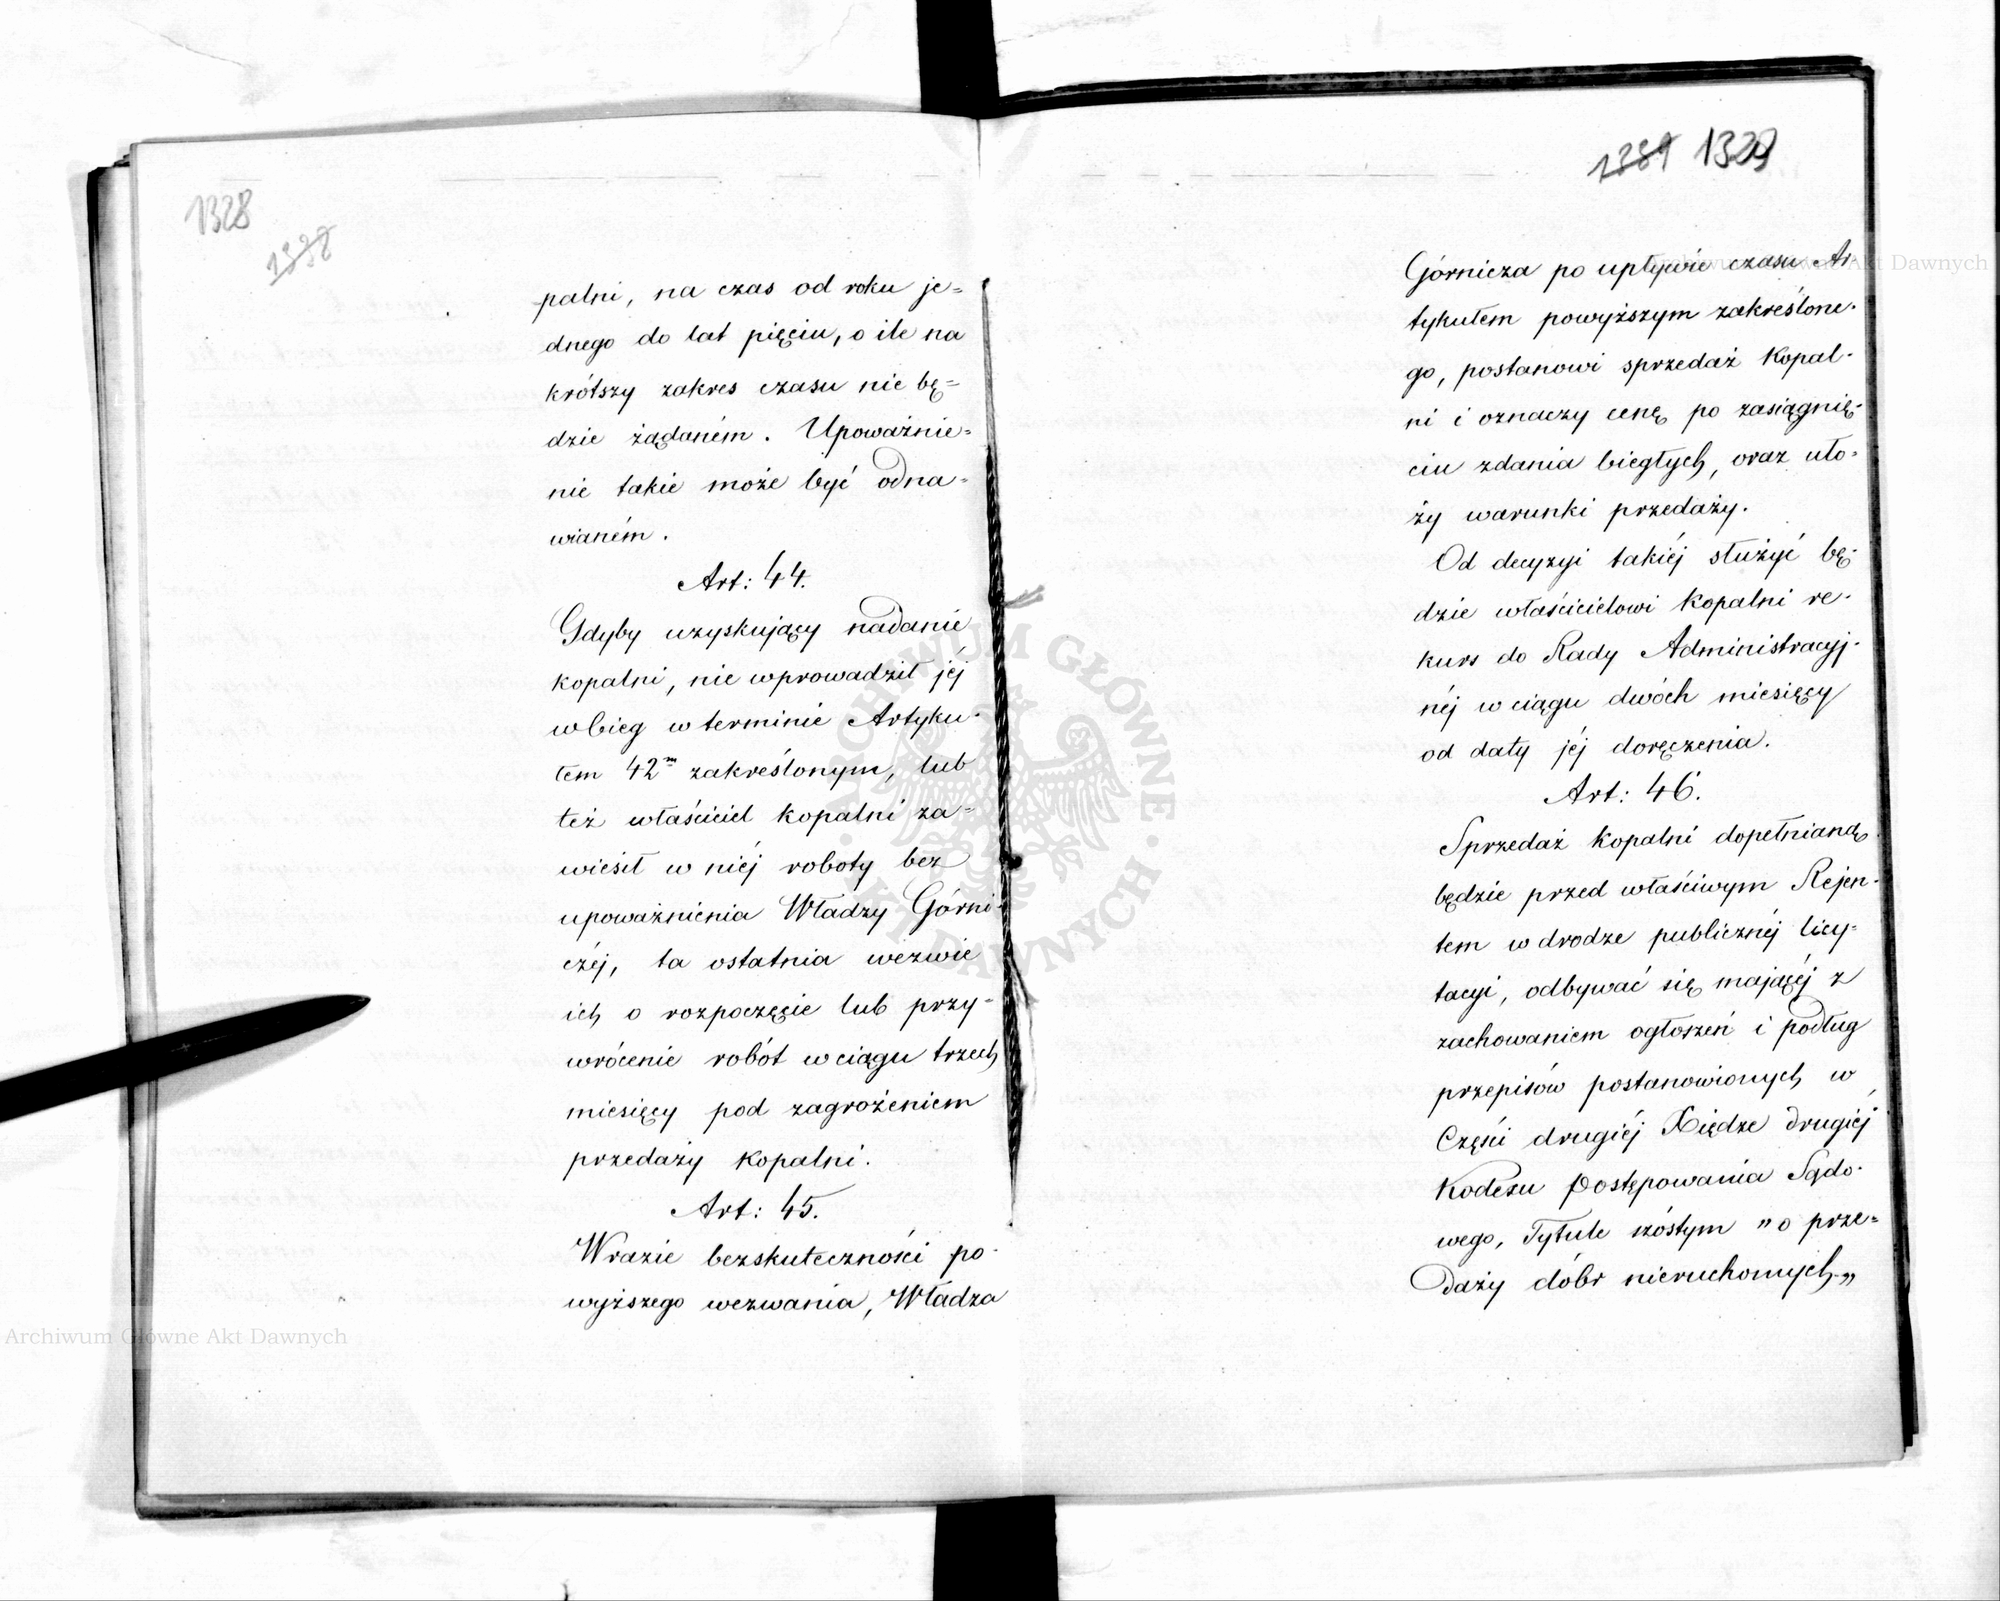 1328
1338
palni, na czas od roku je=
dnego do lat pięciu, o ile na
krótszy zakres czasu nie bę=
dzie żądaném. Upoważnie=
nie takie może być odna=
wianém.
Art: 44.
Gdyby uzyskujący nadanie
kopalni, nie wprowadził jéj
w bieg w terminie Artyku-
łem 42m zakreślonym, lub
też właściciel kopalni za=
wiesił w niéj roboty bez
upoważnienia Władzy Górni-
czéj, ta ostatnia wezwie
ich o rozpoczęcie lub przy=
wrócenie robót w ciągu trzech
miesięcy pod zagrożeniem
przedaży kopalni.
Art: 45.
W razie bezskuteczności po-
wyższego wezwania, Władza
1389 1329
Górnicza po upływie czasu Ar-
tykułem powyższym zakreślone-
go, postanowi sprzedaż Kopal-
ni i oznaczy cenę po zasiągnię-
ciu zdania biegłych, oraz uło-
ży warunki przedaży.
Od decyzyi takiéj służyć bę-
dzie właścicielowi Kopalni re-
kurs do Rady Administracyj-
néj w ciągu dwóch miesięcy
od daty jéj doręczenia.
Art: 46.
Sprzedaż Kopalni dopełnianą
będzie przed właściwym Rejen-
tem w drodze publicznéj licy-
tacyi, odbywać się mającéj z
zachowaniem ogłoszeń i podług
przepisów postanowionych w
Części drugiéj Xiędze drugiéj
Kodexu Postępowania Sądo-
wego, Tytule szóstym "o prze=
daży dóbr nieruchomych."
Archiwum Główne Akt Dawnych
Archiwum Główne Akt Dawnych
ARCHIWUM GŁÓWNE AKT DAWNYCH